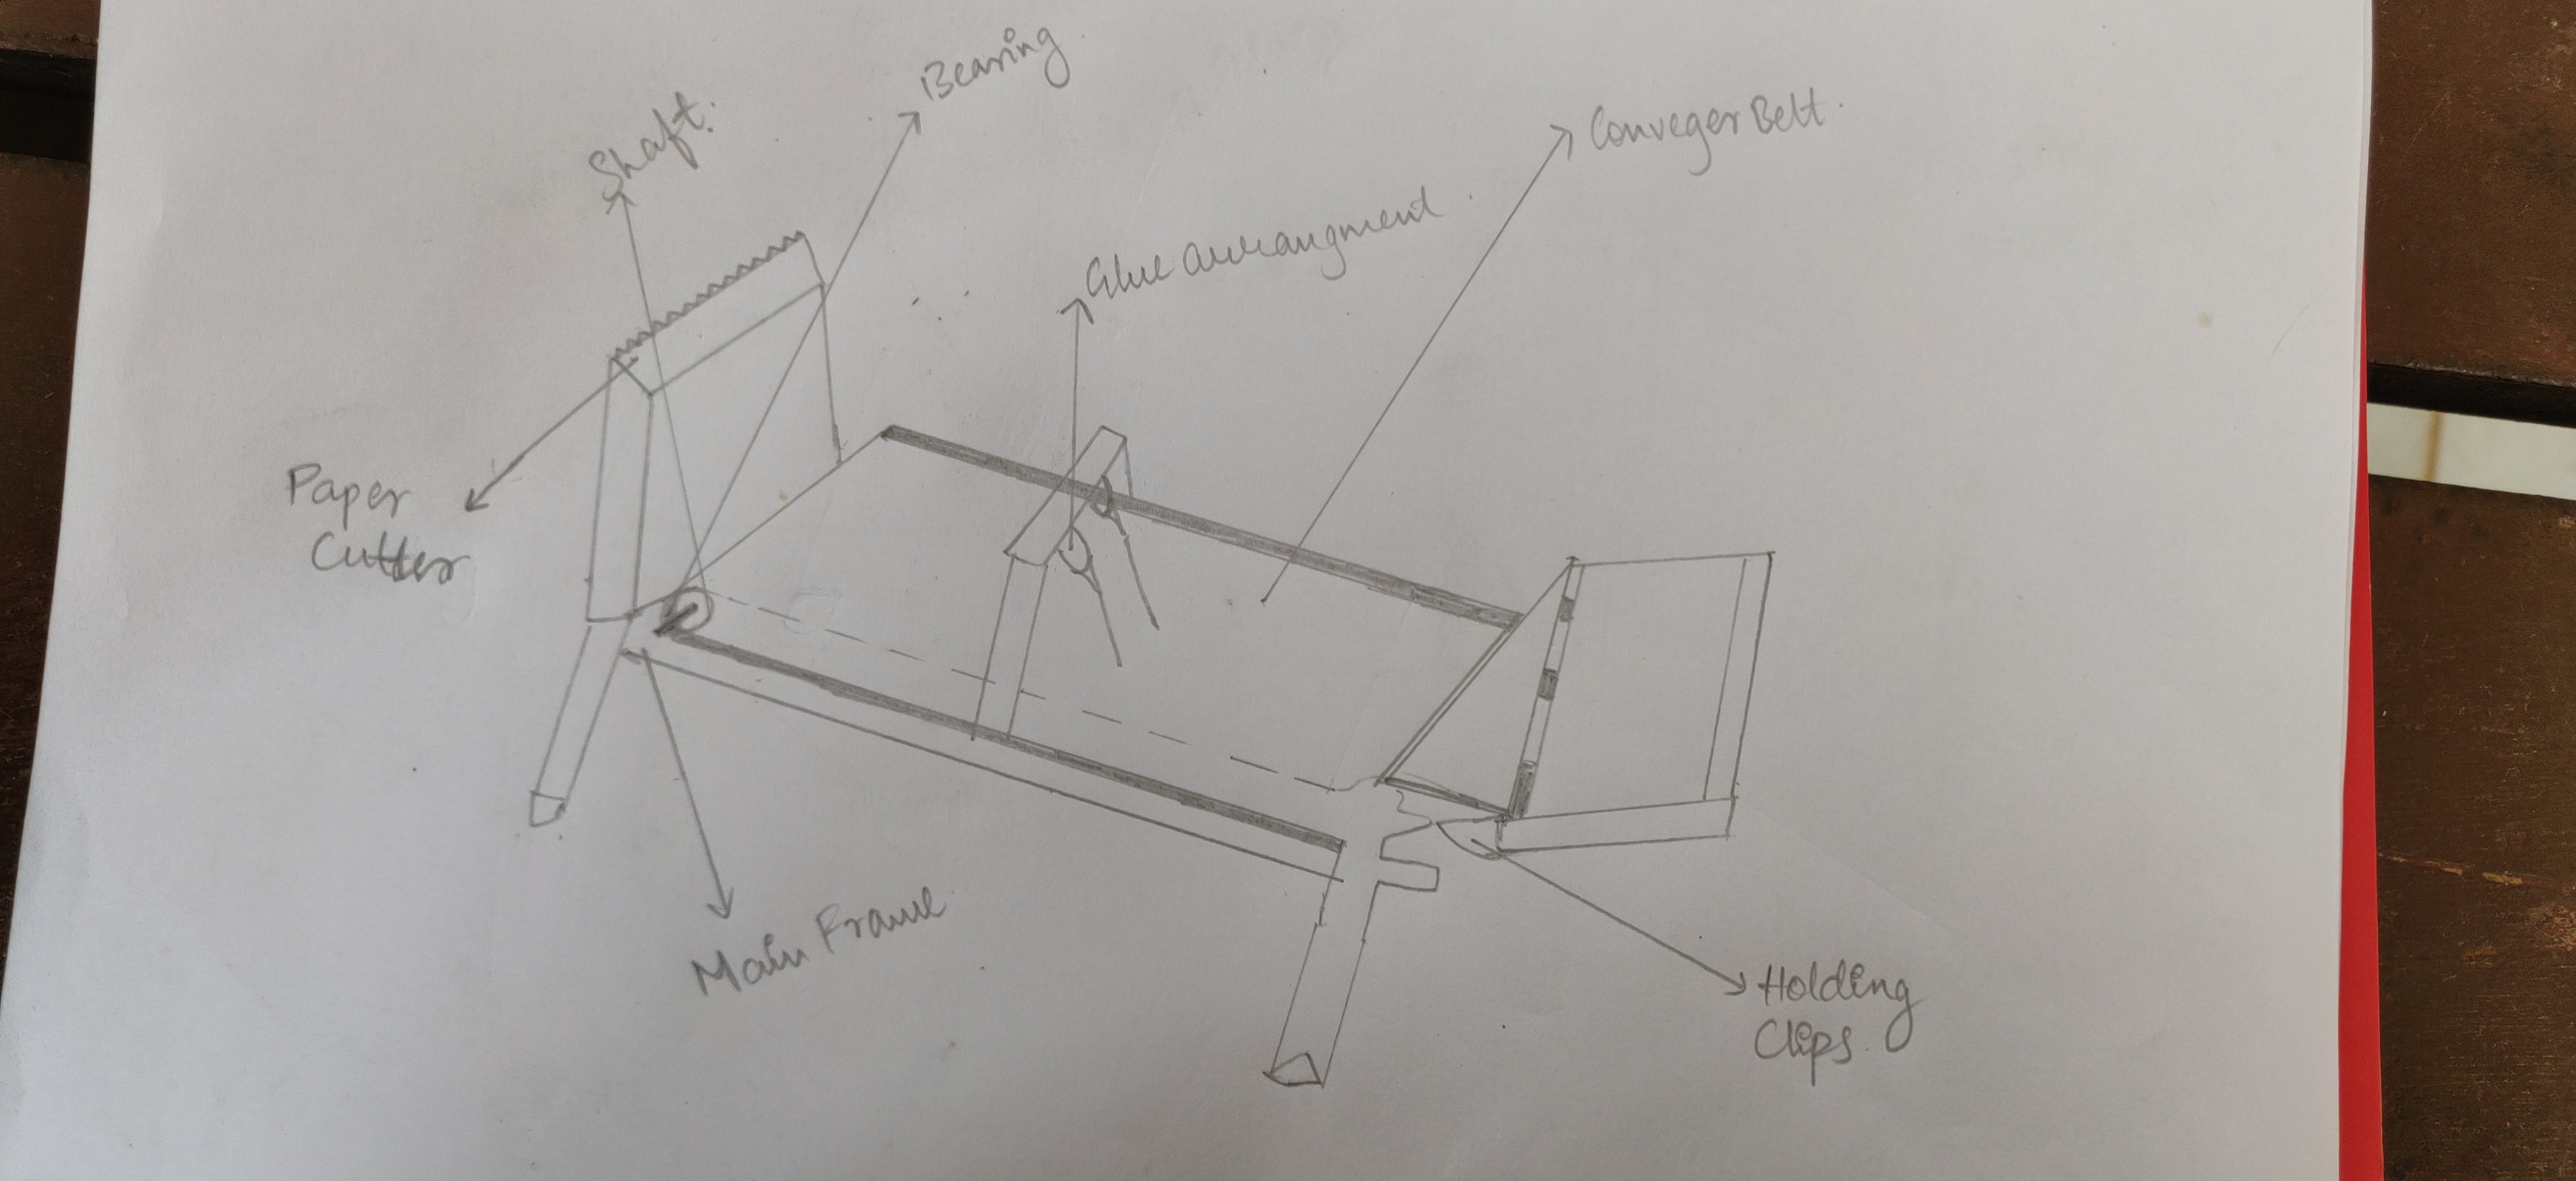 Bearing
Shaft.
Conveger Belt.
Glue arrangment.
Paper
Cutter
Main Frame
Holding
Clips.